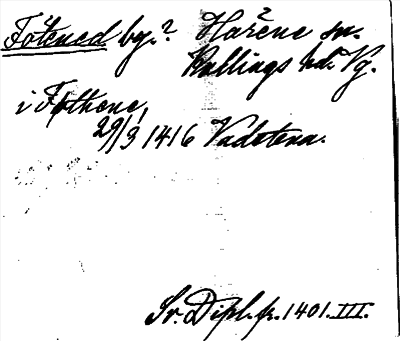 Fötened by.? Häréne sn.
Kållings hd. Vg.
i Føthene,
29/3 1416 Vadstena.
Sv. Dipl. fr. 1401. III.